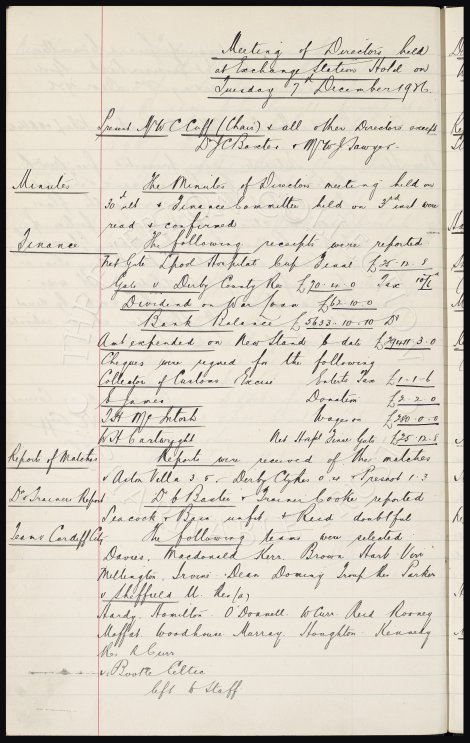 Meeting of Directors held
at Exchange Station Hotel on
Tuesday 7th December 1926.
Present Mr W C Cuff (Chair) & all other Directors except
Dr J C Baxter & Mr W J Sawyer.
Minutes The Minutes of Directors meeting held on
30th ult & Finance Committee held on 3rd inst were
read & confirmed
Finance The following receipts were reported
Net Gate Lpool Hospital Cup £25-12-8
Gate v Derby County Res £70-11-0 Tax
Dividend on War Loan £62-10-0
Bank Balance £5633-10-10 Dr
Amt expended on New Stand to date 3-0
Cheques were signed for the following
Collector of Customs Excise Enterts Tax £1-1-6
James Donation £2-2-0
J.H. McIntosh Wages £280-0-0
W.H. Cartwright Net Gate £25-12-8
Reports of Matches Reports were received of the matches
v Aston Villa 3.5. Derby Cty Res 0.4 & Prescot 1.3
Dr & Trainer Report Dr Baxter & Trainer Cooke reported
Peacock & Bain unfit & Reid doubtful
Team v Cardiff City The following teams were selected
Davies. Macdonald Kerr. Brown Hart Virr
Millington. Irvine. Dean Dominy Troup Res Parker
v Sheffield U. Res (a)
Hardy. Hamilton. O'Donnell W Curr. Reid Rooney
Moffat. Woodhouse Murray. Houghton. Kennedy
Res R Curr
v Bootle Celtic
left to Staff